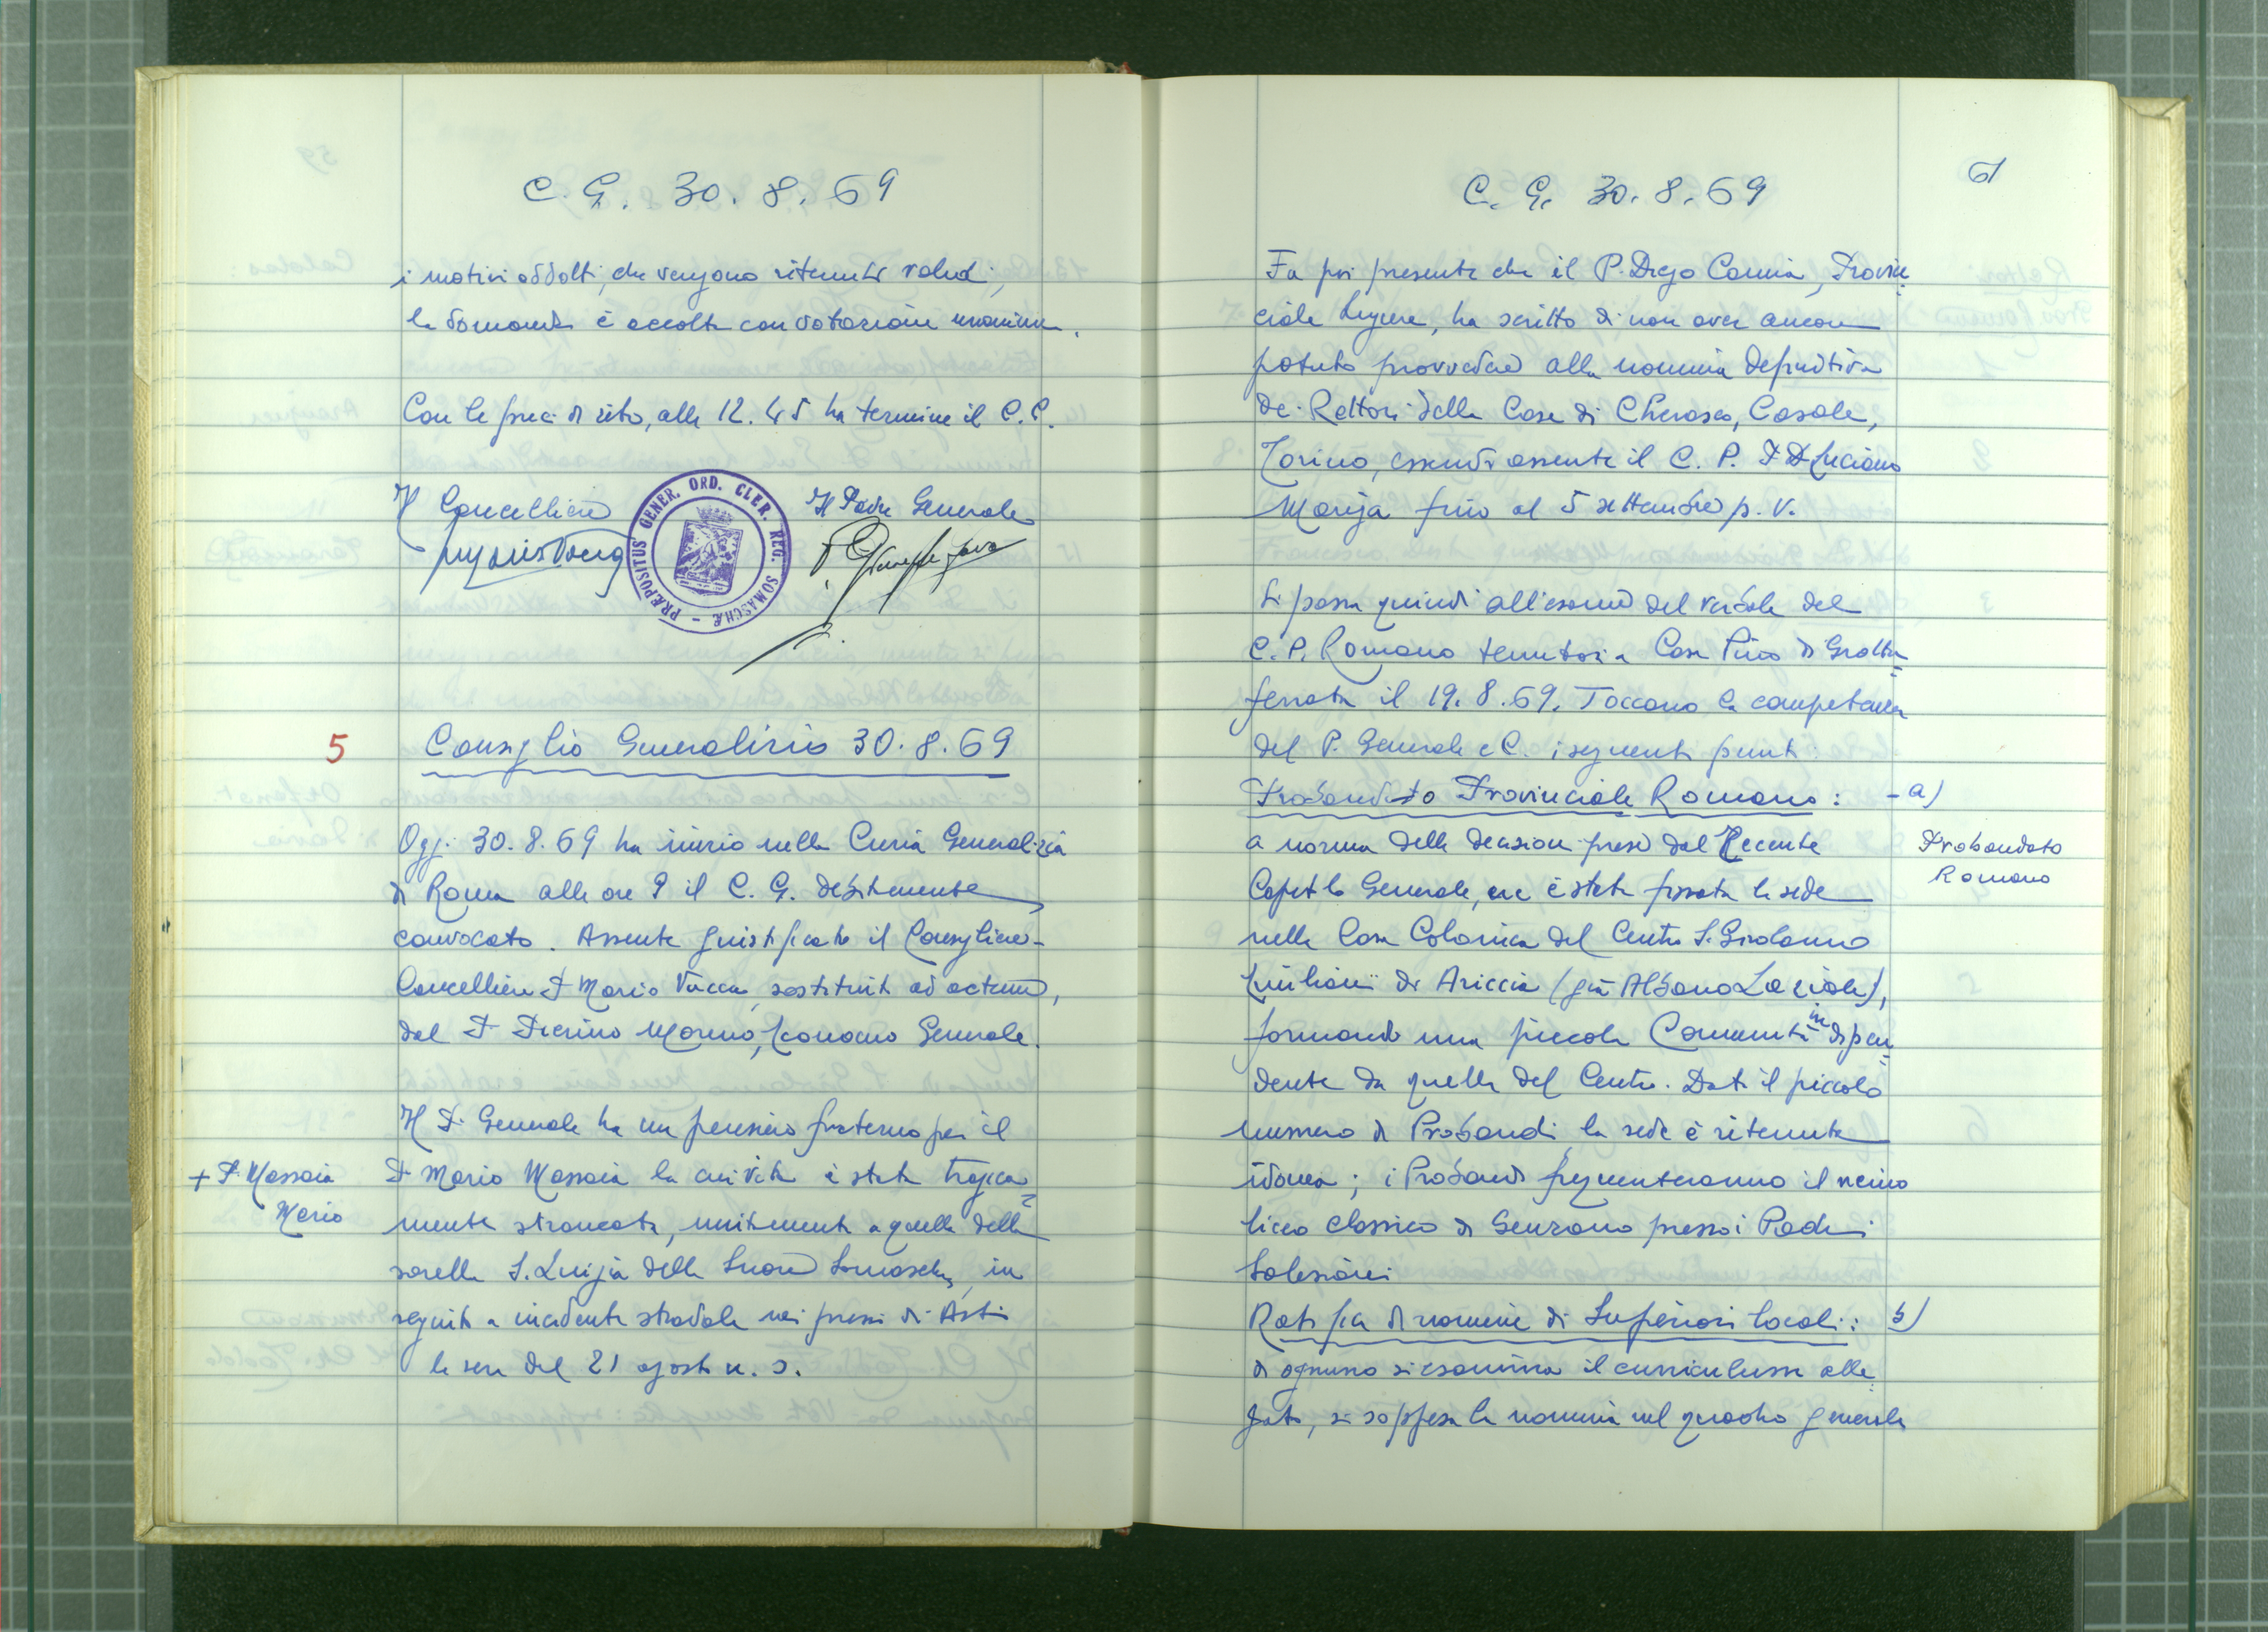 C. G. 30. 8. 69
i motivi addotti, che vengono ritenuti validi,
la domanda è accolta con votazione unanime.
Con le preci di rito, alle 12.45 ha termine il C. C.
Il Cancelliere
Il Padre Generale
PRÆPOSITUS GENER. ORD. CLER. REG. SOMASCHÆ -
5
Consiglio Generalizio 30. 8. 69
Oggi 30. 8. 69 ha inizio nella Curia Generalizia
di Roma alle ore 9 il C. G. debitamente
convocato. Assente giustificato il Consigliere-
Cancelliere P. Mario Vacca, sostituito ad actum,
dal P. Pierino Moreno, Economo Generale.
Il P. Generale ha un pensiero fraterno per il
+ P. Massaia
Mario
P. Mario Massaia la cui vita è stata tragica=
mente stroncata, unitamente a quella della
sorella S. Luigia delle Suore Somasche, in
seguito a incidente stradale nei pressi di Asti
la sera del 21 agosto u. s.
C. G. 30. 8. 69
61
Fa poi presente che il P. Diego Camia, Provin=
ciale Ligure, ha scritto di non aver ancora
potuto provvedere alla nomina definitiva
dei Rettori delle Case di Cherasco, Casale,
Torino, essendo assente il C. P. P. D. Luciano
Mariga fino al 5 settembre p. v.
Si passa quindi all'esame del verbale del
C. P. Romano tenutosi a Casa Pino di Grotta=
ferrata il 19. 8. 69. Toccano la competenza
del P. Generale e C. i seguenti punti:
Probandato Provinciale Romano: - a)
a norma delle decisioni prese dal Recente
Probandato
Romano
Capitolo Generale, ne è stata fissata la sede
nella Casa Colonica del Centro S. Girolamo
Emiliani di Ariccia (già Albano Laziale),
formando una piccola Comunità indipen=
dente da quella del Centro. Dato il piccolo
numero di Probandi la sede è ritenuta
idonea; i Probandi frequenteranno il vicino
liceo classico di Genzano presso i Padri
Salesiani
Ratifica di nomine di Superiori locali: b)
di ognuno si esamina il curriculum alle=
gato, si soppesa la nomina nel quadro generale